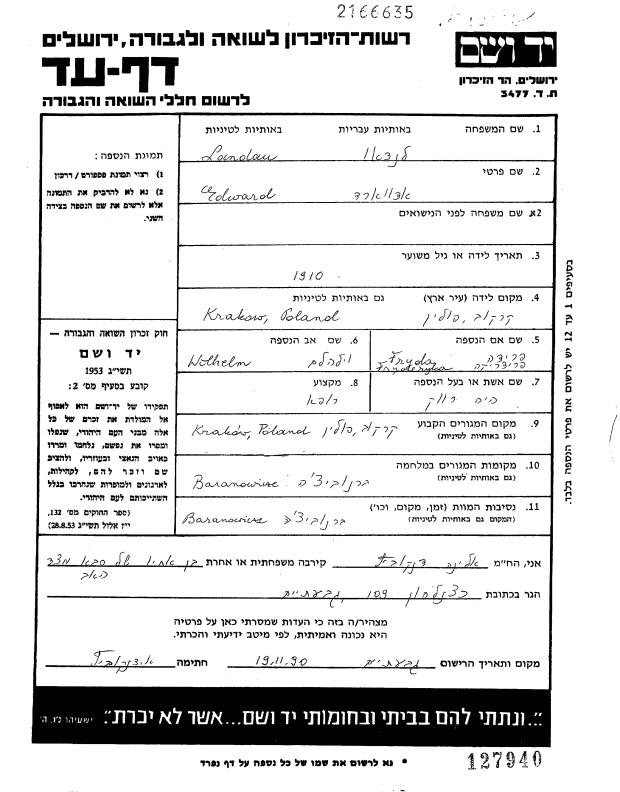 2166635
רשות-הזיכרון לשואה ולגבורה, ירושלים
דף-עד
לרשום חללי השואה והגבורה
יד ושם
ירושלים, הר הזיכרון
ת. ד. 3477
תמונת הנספה:
1) רצוי תמונת פספורט/דרכון
2) נא לא להדביק את התמונה
אלא לרשום את שם הנספה בצידה
השני.
1. שם המשפחה באותיות עבריות באותיות לטיניות
לנדאו Landau
2. שם פרטי
אדווארד Edward
2א. שם משפחה לפני הנישואים
3. תאריך לידה או גיל משוער
1910
4. מקום לידה (עיר ארץ) גם באותיות לטיניות
קרקוב, פולין Kraków, Poland
5. שם אם הנספה
פרידה Fryda
פרידריקה Fryderyka
6. שם אב הנספה
וילהלם Wilhelm
7. שם אשת או בעל הנספה
8. מקצוע
רופא
9. מקום המגורים הקבוע
(גם באותיות לטיניות)
קרקוב, פולין Kraków, Poland
10. מקומות המגורים במלחמה
(גם באותיות לטיניות)
ברנוביצ'ה Baranowicze
11. נסיבות המוות (זמן, מקום, וכו')
(המקום גם באותיות לטיניות)
ברנוביצ'ה Baranowicze
חוק זכרון השואה והגבורה —
יד ושם
תשי"ג 1953
קובע בסעיף מס' 2:
תפקידו של יד-ושם הוא לאסוף
אל המולדת את זכרם של כל
אלה מבני העם היהודי, שנפלו
ומסרו את נפשם, נלחמו ומרדו
באויב הנאצי ובעוזריו, ולהציב
שם וזכר להם, לקהילות,
לארגונים ולמוסדות שנחרבו בגלל
השתייכותם לעם היהודי.
(ספר החוקים מס' 132,
י"ז אלול תשי"ג 28.8.53)
בסעיפים 1 עד 12 יש לרשום את פרטי הנספה בלבד.
אני, הח"מ אלינה קירבה משפחתית או אחרת בן אחיו של סבא מצד
האב
הגר בכתובת כצנלסון גבעתיים
מצהיר/ה בזה כי העדות שמסרתי כאן על פרטיה
היא נכונה ואמיתית, לפי מיטב ידיעתי והכרתי.
מקום ותאריך הרישום גבעתיים 19.11.90 חתימה
"...ונתתי להם בביתי ובחומותי יד ושם...אשר לא יכרת": ישעיהו נ"ו, ה'
* נא לרשום את שמו של כל נספה על דף נפרד
127940